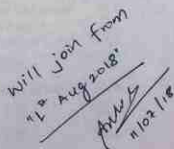 Will join from
"1st Aug 2018"
11/07/18